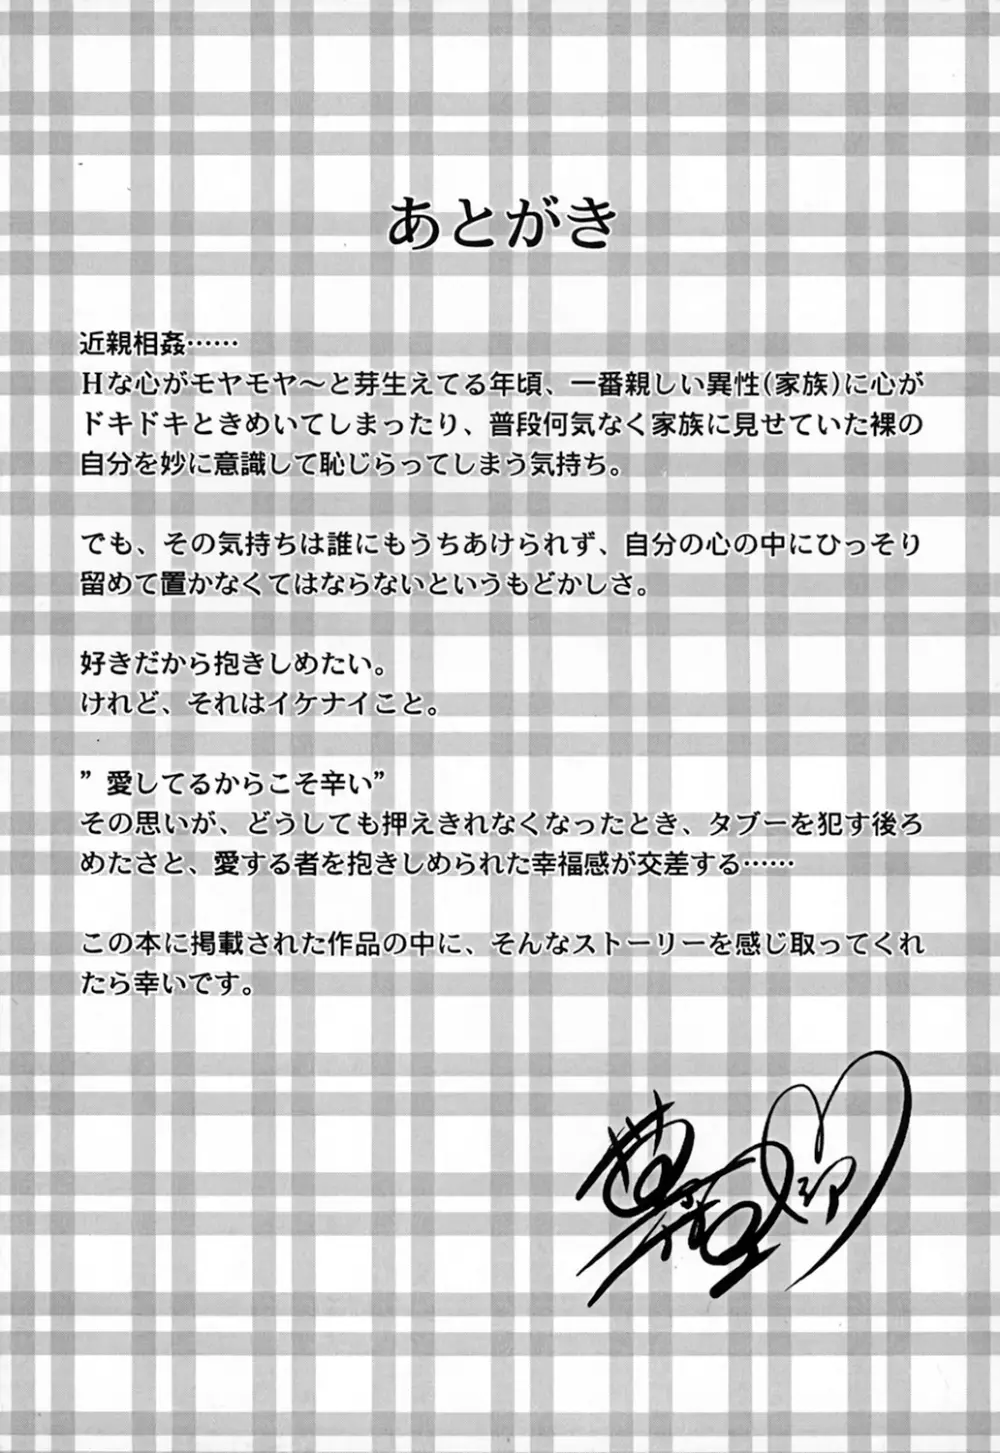 あとがき
近親相姦……
Hな心がモヤモヤ～と芽生えてる年頃、一番親しい異性(家族)に心が
ドキドキときめいてしまったり、普段何気なく家族に見せていた裸の
自分を妙に意識して恥じらってしまう気持ち。
でも、その気持ちは誰にもうちあけられず、自分の心の中にひっそり
留めて置かなくてはならないというもどかしさ。
好きだから抱きしめたい。
けれど、それはイケナイこと。
”愛してるからこそ辛い”
その思いが、どうしても押えきれなくなったとき、タブーを犯す後ろ
めたさと、愛する者を抱きしめられた幸福感が交差する……
この本に掲載された作品の中に、そんなストーリーを感じ取ってくれ
たら幸いです。